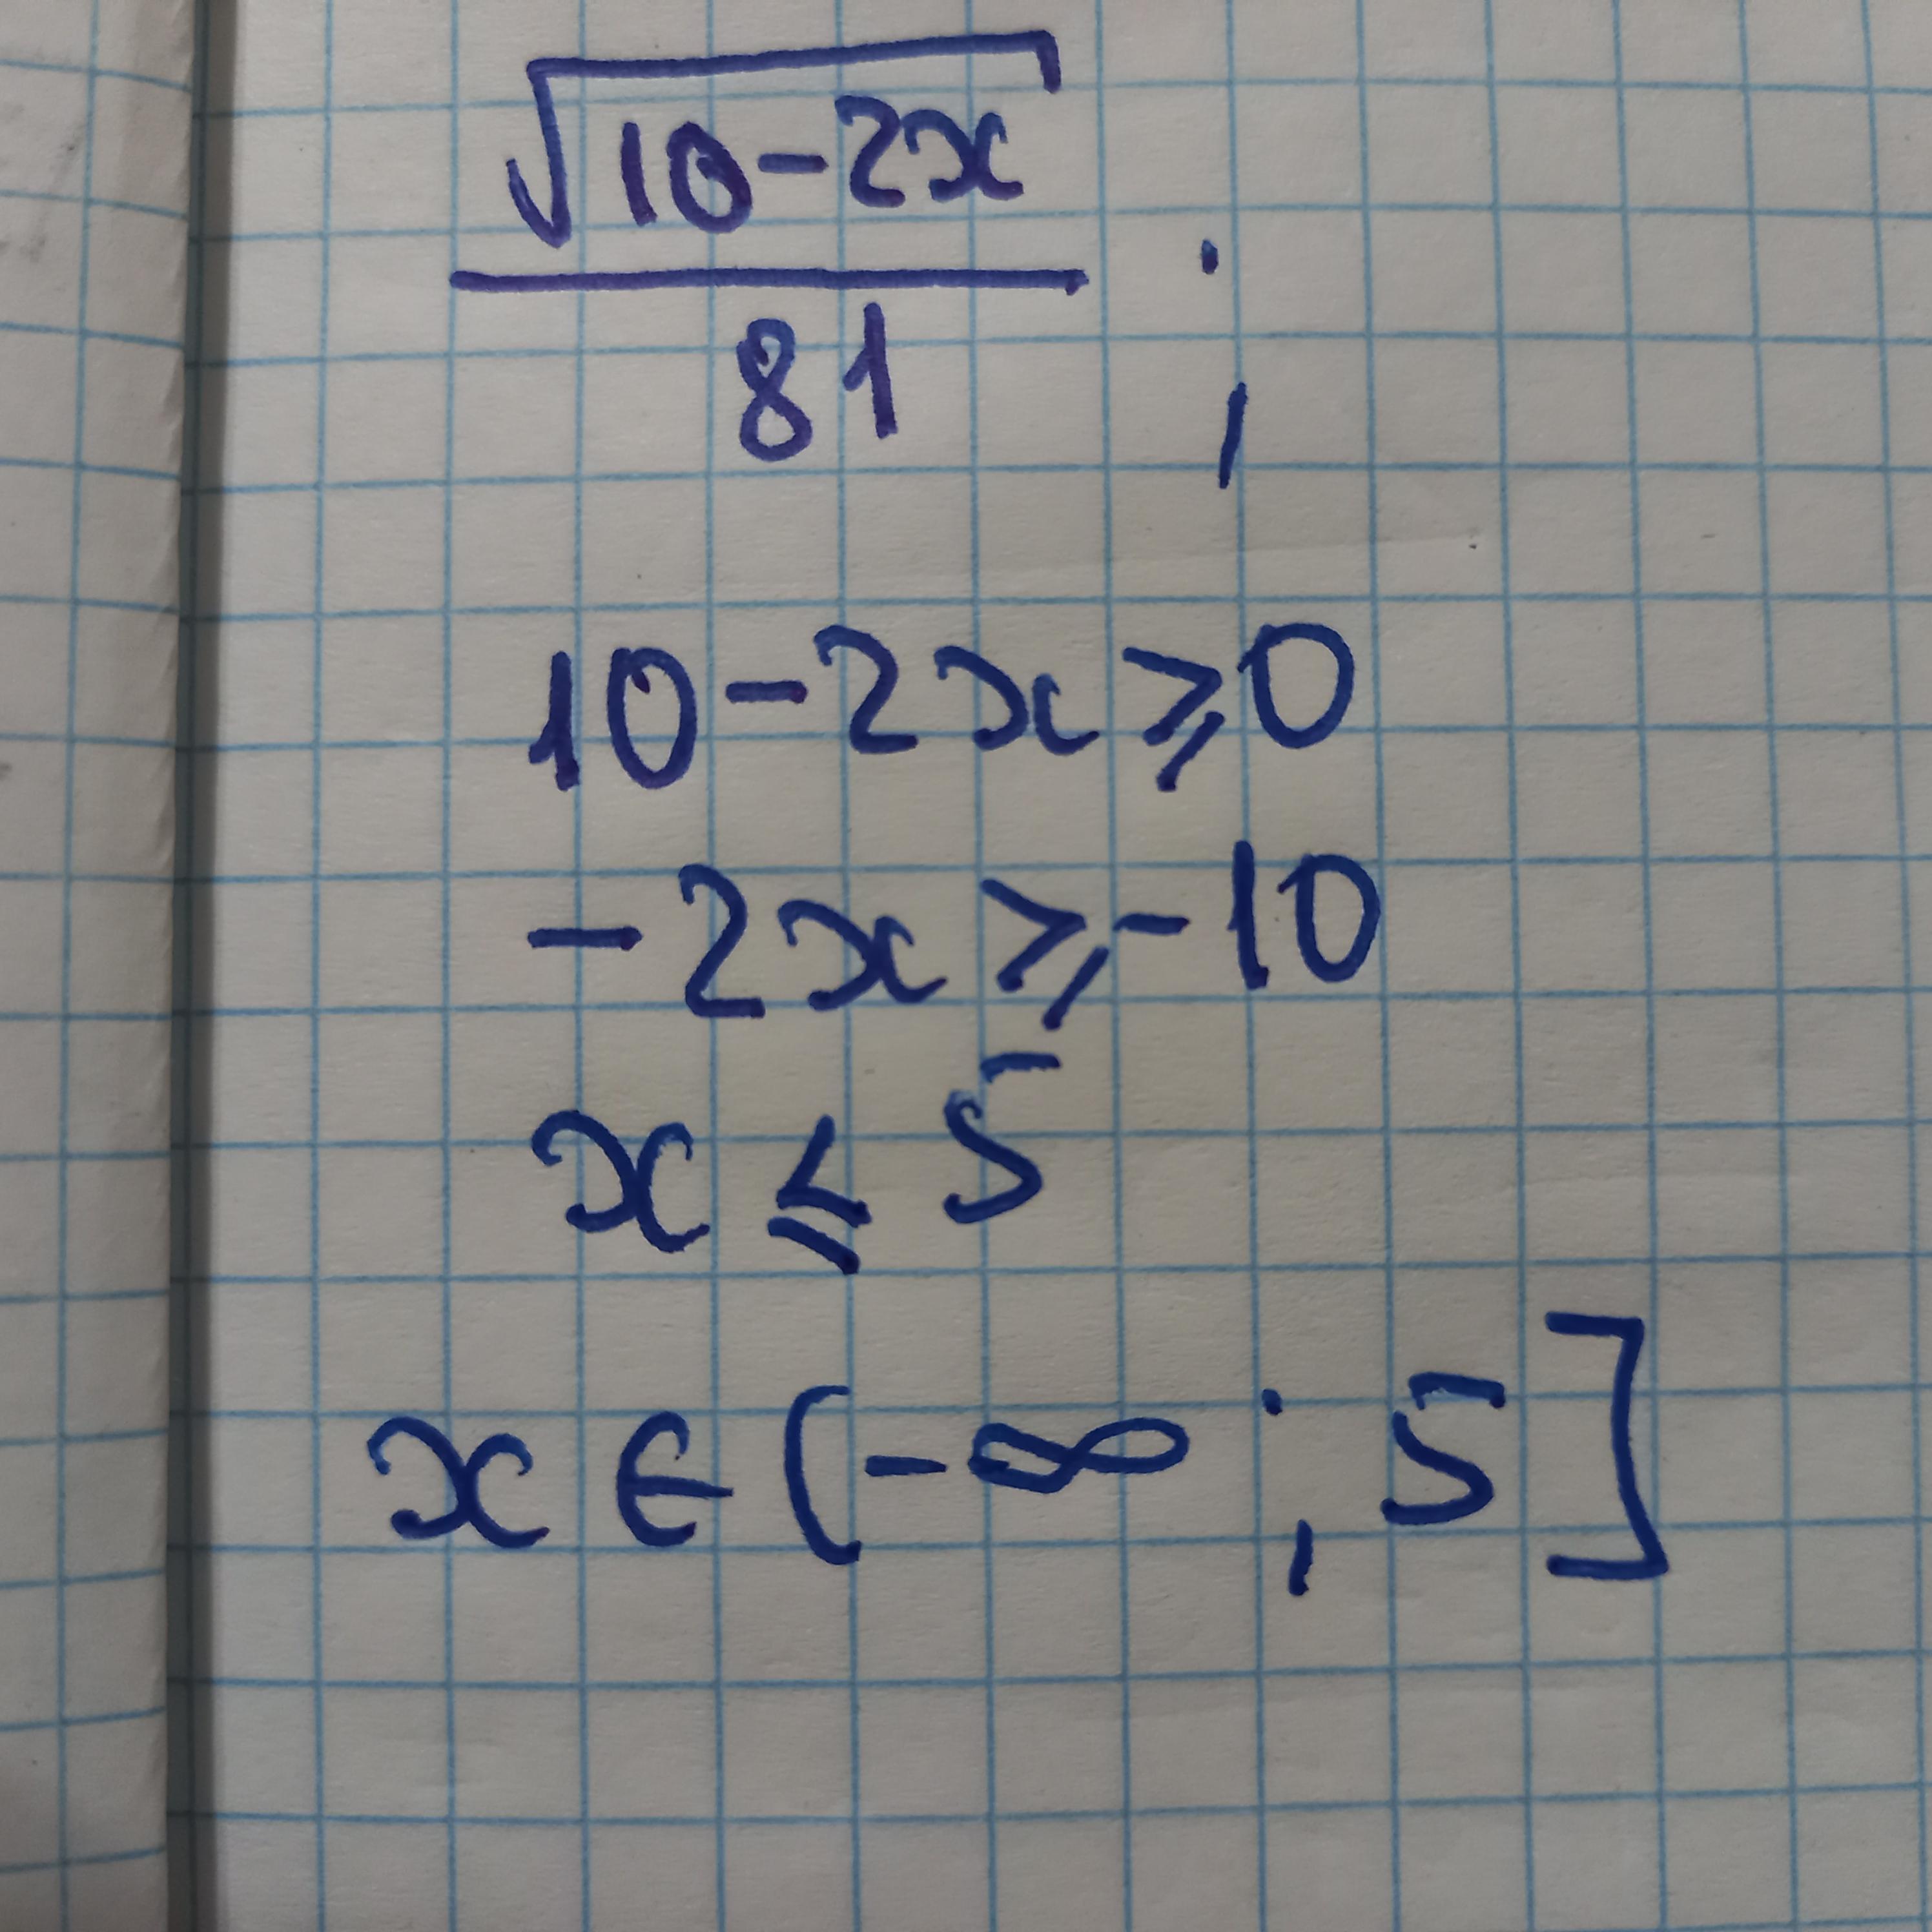 √(10-2x)
81 ;
10-2x⩾0
-2x⩾-10
x≤5
x∈(-∞;5]